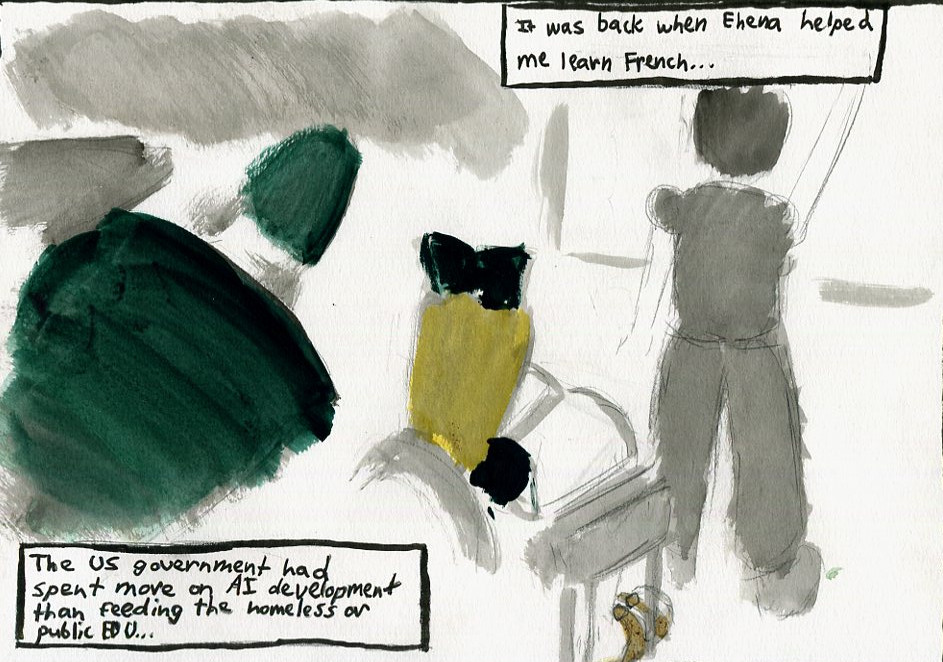 It was back when Ehena helped
me learn French...
The US government had
spent more on AI development
than feeding the homeless or
public EDU...